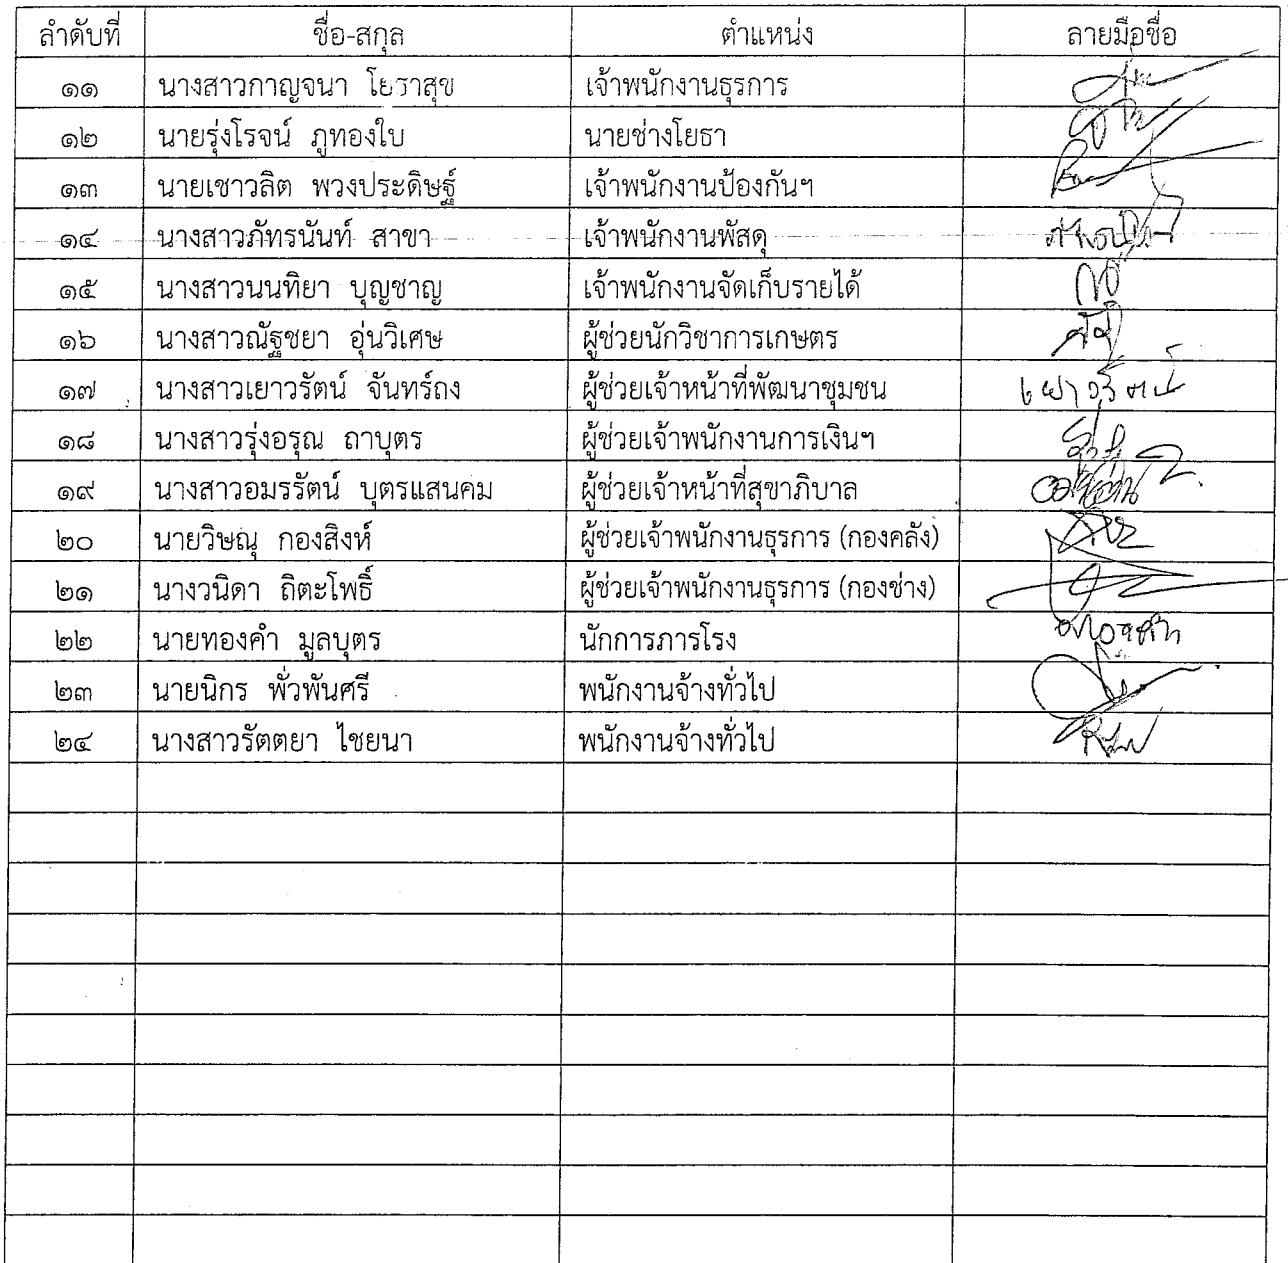 ลำดับที่ ชื่อ-สกุล ตำแหน่ง ลายมือชื่อ
๑๑ นางสาวกาญจนา โยธาสุข เจ้าพนักงานธุรการ
๑๒ นายรุ่งโรจน์ ภูทองใบ นายช่างโยธา
๑๓ นายเชาวลิต พวงประดิษฐ์ เจ้าพนักงานป้องกันฯ
๑๔ นางสาวภัทรนันท์ สาขา เจ้าพนักงานพัสดุ
๑๕ นางสาวนนทิยา บุญชาญ เจ้าพนักงานจัดเก็บรายได้
๑๖ นางสาวณัฐชยา อุ่นวิเศษ ผู้ช่วยนักวิชาการเกษตร
๑๗ นางสาวเยาวรัตน์ จันทร์ถง ผู้ช่วยเจ้าหน้าที่พัฒนาชุมชน เยาวรัตน์
๑๘ นางสาวรุ่งอรุณ ถาบุตร ผู้ช่วยเจ้าพนักงานการเงินฯ
๑๙ นางสาวอมรรัตน์ บุตรแสนคม ผู้ช่วยเจ้าหน้าที่สุขาภิบาล
๒๐ นายวิษณุ กองสิงห์ ผู้ช่วยเจ้าพนักงานธุรการ (กองคลัง)
๒๑ นางวนิดา ถิตะโพธิ์ ผู้ช่วยเจ้าพนักงานธุรการ (กองช่าง)
๒๒ นายทองคำ มูลบุตร นักการภารโรง ทองคำ
๒๓ นายนิกร พั่วพันศรี พนักงานจ้างทั่วไป
๒๔ นางสาวรัตตยา ไชยนา พนักงานจ้างทั่วไป